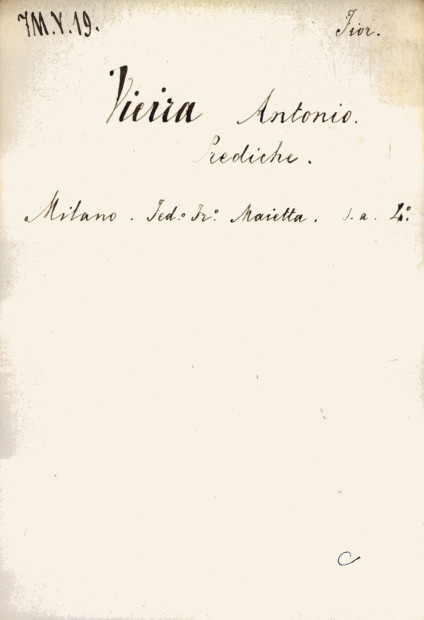 7M.V.19. Fior.
Vieira Antonio.
Prediche.
Milano. Fed.º Fr.º Maietta. s. a. 4.º
C